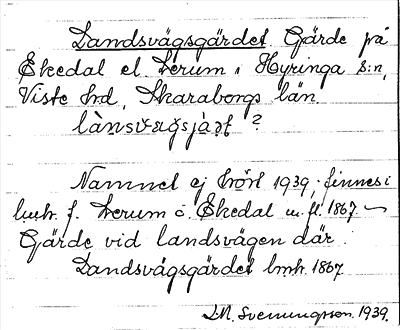 Landsvägsgärdet Gärde på
Ekedal el. Lerum i Hyringa s:n,
Viste hrd, Skaraborgs län.
?
Namnet ej hört 1939; finnes i
lmh. f. Lerum o. Ekedal m. fl. 1867
Gärde vid landsvägen där.
Landsvägsgärdet lmh. 1867
M. Svenungsson 1939.